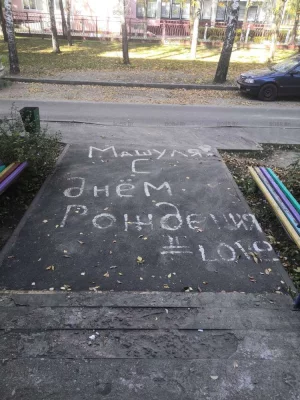 Машуля
С
днём
Рождения
#LOVE